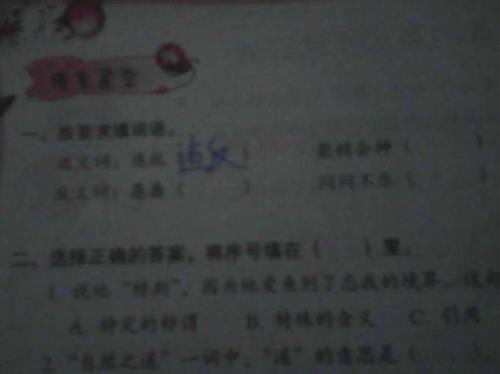 一、按要求填词语。
近义词：违抗（ ） 聚精会神（ ）
反义词：愚蠢（ ） 闷闷不乐（ ）
二、选择正确的答案，将序号填在（ ）里。
1. 说他“特别”，因为他爱鱼到了忘我的境界。这句
A. 特定的称谓 B. 特殊的含义 C. 引用
2. “自然之道”一词中，“道”的意思是（ ）。